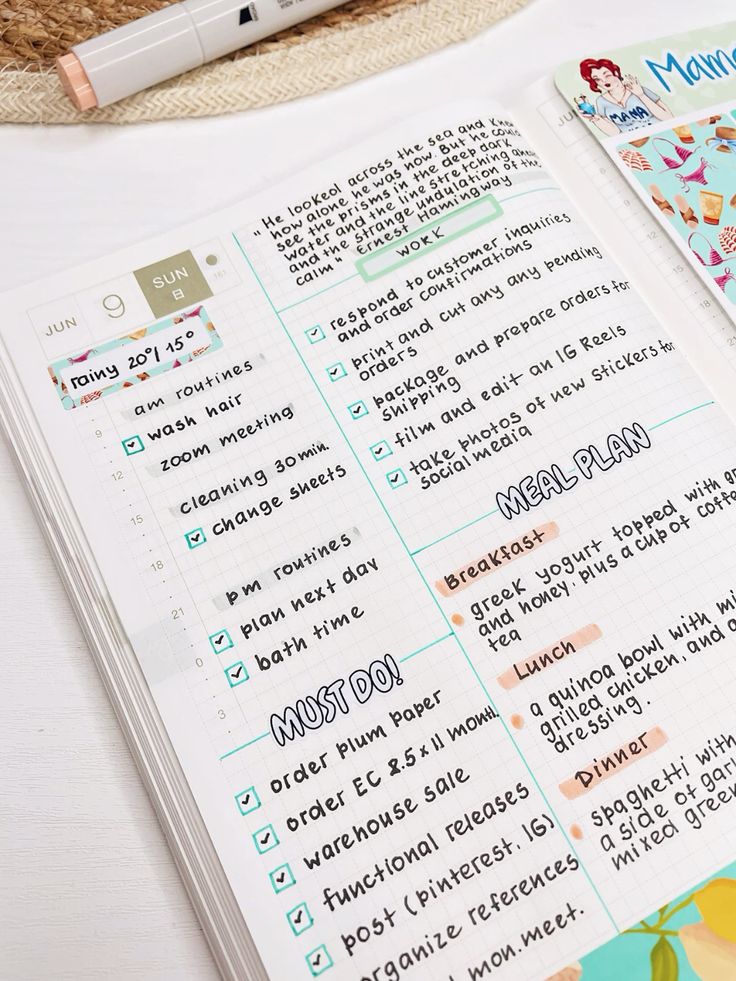 JUN 9 SUN 日
161
rainy 20°/ 15°
9
12
15
18
21
0
3
am routines
wash hair
zoom meeting
cleaning 30 min.
change sheets
pm routines
plan next day
bath time
MUST DO!
order plum paper
order EC 8.5x11 month.
warehouse sale
functional releases
post (pinterest, IG)
organize references
mon.meet.
"He looked across the sea and knew
how alone he was now. But he could
see the prisms in the deep dark
water and the line stretching ahead
and the strange undulation of the
calm" Ernest Hamingway
WORK
respond to customer inquiries
and order confirmations
print and cut any any pending
orders
package and prepare orders for
shipping
film and edit an IG Reels
take photos of new stickers for
social media
MEAL PLAN
Breakfast
greek yogurt topped with
and honey. plus a cup of
tea
Lunch
a quinoa bowl with
grilled chicken, and
dressing.
Dinner
spaghetti with
a side of
mixed
JUN
MAMA
12
15
18
21